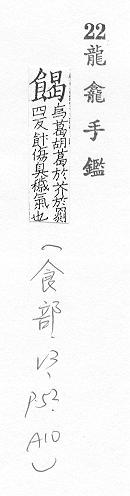 22 龍龕手鑑
餲
烏葛胡葛於芥於罽
四反飰傷臭穢氣也
(食部.V3.P.52.A10)